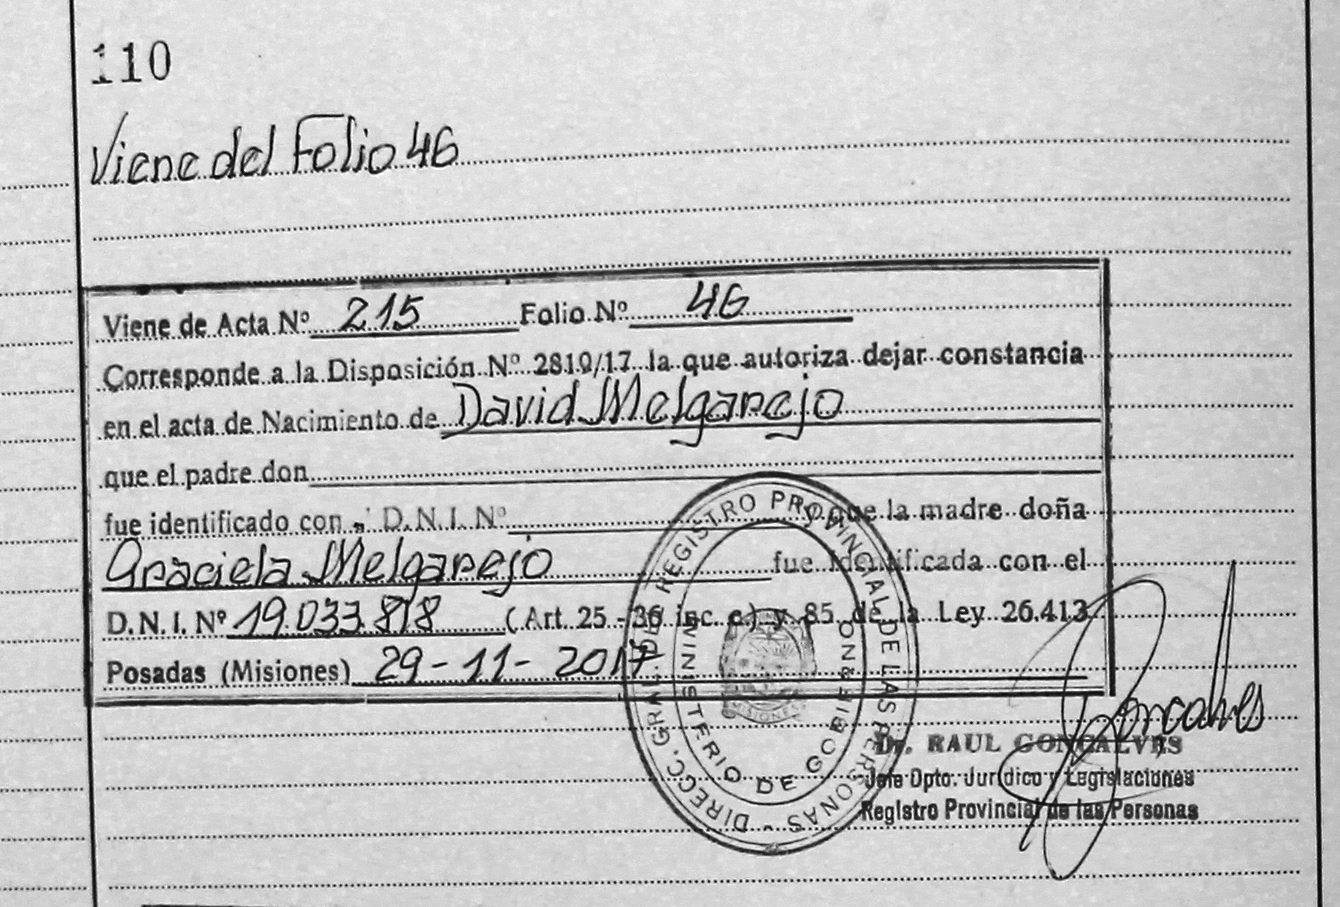 110
Viene del Folio 46
Viene de Acta Nº 215 Folio Nº 46
Corresponde a la Disposición Nº 2819/17 la que autoriza dejar constancia
en el acta de Nacimiento de David Melgarejo
que el padre don
fue identificado con D.N.I. Nº y que la madre doña
Graciela Melgarejo fue identificada con el
D.N.I. Nº 19.033.878 (Art. 25 - 36 inc. c) y 85 de la Ley 26.413
Posadas (Misiones) 29-11-2017
DIRECC. GRAL. DEL REGISTRO PROVINCIAL DE LAS PERSONAS -
MINISTERIO DE GOBIERNO
MISIONES
Goncalves
Dr. RAUL GONCALVES
Jefe Dpto. Jurídico y Legislaciones
Registro Provincial de las Personas